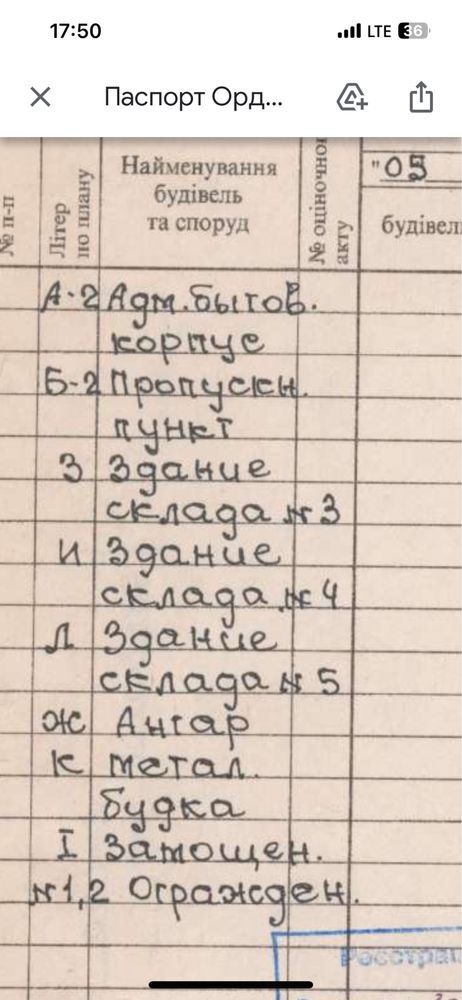 17:50
LTE 36
Паспорт Орд...
№ п-п
Літер по плану
Найменування
будівель
та споруд
№ оціночного акту
"05
будівель
А-2 Адм.бытов.
корпус
Б-2 Пропускн.
пункт
З Здание
склада №3
И Здание
склада №4
Л Здание
склада №5
Ж Ангар
К метал.
будка
I Замощен.
№1,2 Огражден.
Реєстрац